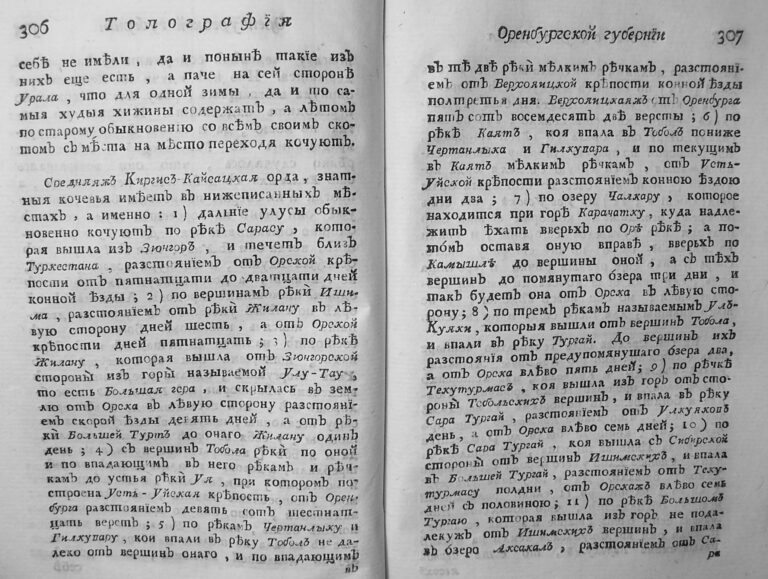 306 Топографія
себѣ не имѣли, да и понынѣ такіе изъ
нихъ еще есть, а паче на сей сторонѣ
Урала, что для одной зимы, да и то са-
мыя худыя хижины содержатъ, а лѣтомъ
по старому обыкновенію со всѣмъ своимъ ско-
томъ съ мѣста на мѣсто переходя кочуютъ.
Средняяжъ Киргисъ-Кайсацкая орда, знат-
ныя кочевья имѣетъ въ нижеписанныхъ мѣ-
стахъ, а именно: 1) дальніе улусы обык-
новенно кочуютъ по рѣкѣ Сарасу, кото-
рая вышла изъ Зюнгоръ, и течетъ близь
Туркестана, разстояніемъ отъ Орской крѣ-
пости отъ пятнатцати до дватцати дней
конной ѣзды; 2) по вершинамъ рѣки Иши-
ма, разстояніемъ отъ рѣки Жилану въ лѣ-
вую сторону дней шесть, а отъ Орской
крѣпости дней пятнатцать; 3) по рѣкѣ
Жилану, которая вышла отъ Зюнгорской
стороны изъ горы называемой Улу-Тау,
то есть Большая гора, и скрылась въ зем-
лю отъ Орска въ лѣвую сторону разстояні-
емъ скорой ѣзды девять дней, а отъ рѣ-
ки Большей Туртъ до онаго Жилану одинъ
день; 4) съ вершинъ Тобола рѣки по оной
и по впадающимъ въ него рѣкамъ и рѣч-
камъ до устья рѣки Уя, при которомъ по-
строена Усть-Уйская крѣпость, отъ Орен-
бурга разстояніемъ девять сотъ шестнат-
цать верстъ; 5) по рѣкамъ Чертанлыку и
Гилкупару, кои впали въ рѣку Тоболъ не да-
леко отъ вершинъ онаго, и по впадающимъ
въ
Оренбургской губерніи 307
въ тѣ двѣ рѣки мѣлкимъ рѣчкамъ, разстояні-
емъ отъ Верхояицкой крѣпости конной ѣзды
полтретья дня. Верхояицкаяжъ отъ Оренбурга
пять сотъ восемдесятъ двѣ версты; 6) по
рѣкѣ Каятъ, коя впала въ Тоболъ пониже
Чертанлыка и Гилкупара, и по текущимъ
въ Каятъ мѣлкимъ рѣчкамъ, отъ Усть-
Уйской крѣпости разстояніемъ конною ѣздою
дни два; 7) по озеру Чалкару, которое
находится при горѣ Карачатху, куда надле-
житъ ѣхать вверьхъ по Орѣ рѣкѣ; а по-
томъ оставя оную вправѣ, вверьхъ по
Камышлѣ до вершины оной, а съ тѣхъ
вершинъ до помянутаго озера три дни, и
такъ будетъ она отъ Орска въ лѣвую сто-
рону; 8) по тремъ рѣкамъ называемымъ Улъ-
Куяхи, которыя вышли отъ вершинъ Тобола,
и впали въ рѣку Тургай. До вершинъ ихъ
разстоянія отъ предупомянутаго озера два,
а отъ Орска влѣво пять дней; 9) по рѣчкѣ
Техутурмасъ, коя вышла изъ горъ отъ сто-
роны Тобольскихъ вершинъ, и впала въ рѣку
Сара Тургай, разстояніемъ отъ Улкуяховъ
день, а отъ Орска влѣво семь дней; 10) по
рѣкѣ Сара Тургай, коя вышла съ Сибирской
стороны отъ вершинъ Ишимскихъ, и впала
въ Большей Тургай, разстояніемъ отъ Теху-
турмасу полдни, отъ Орскажъ влѣво семь
дней съ половиною; 11) по рѣкѣ Большомъ
Тургаю, которая вышла изъ горъ не пода-
лекужъ отъ Ишимскихъ вершинъ, и впала
въ озеро Аксакалъ, разстояніемъ отъ Са-
ра